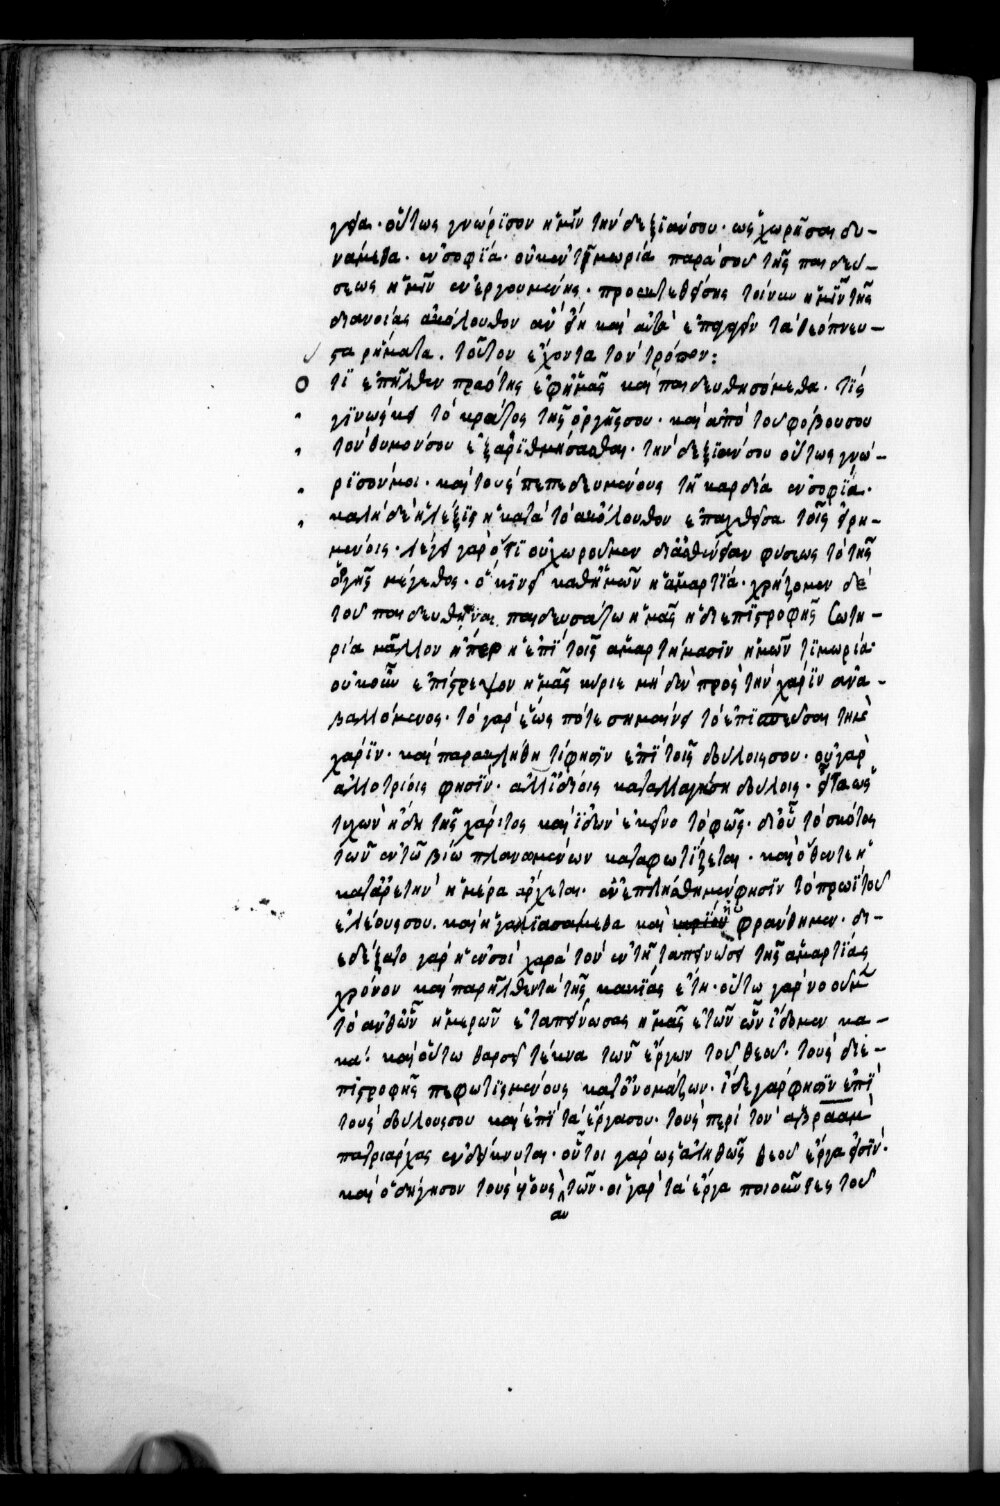 γεία· οὕτως γνώρϊσον ἡμῖν τὴν δεξϊάνσου· ὡς χωρῆσαι δυ-
νάμεθα· ἐν σοφϊά· οὐκ ἐν τῇ μωρία παρά σου τῆς παιδευ-
σεως ἡμῖν ἐνεργουμένης· προεκτεθείσης τοίνυν ἡμῖν τῆς
διανοίας ἀκόλουθον ἂν εἴη καὶ αὐτὰ ἐπαγαγεῖν τὰ θεόπνευ-
στα ρήματα. τοῦτον ἔχοντα τὸν τρόπον:
τϊ ἐπῆλθεν πραότης ἐφ ἡμᾶς καὶ παιδευθησόμεθα· τϊς
γϊνώσκει τὸ κράτος τῆς ὀργῆς σου· καὶ ἀπὸ τοῦ φόβου σου
τὸν θυμόν σου ἐξαρϊθμήσασθαι· τὴν δεξϊάν σου οὕτως γνώ-
ρϊσόν μοι· καὶ τοὺς πεπεδευμένους τῇ καρδία ἐν σοφϊά·
καὶ ἡ δὲ ἡ λέξϊς ἡ κατὰ τὸ ἀκόλουθον ἐπαχθεῖσα τοῖς εἰρη-
μένοις· λέγει γὰρ ὅτϊ οὐ χωροῦμεν δι ἀσθένειαν φύσεως τὸ τῆς
ὀργῆς μέγεθος· ὃ κϊνεῖ καθ ἡμῶν ἡ ἁμαρτϊά· χρήζομεν δὲ
τοῦ παιδευθῆναι παιδευσάτω ἡμᾶς ἡ δι ἐπϊστροφῆς σωτη-
ρία μᾶλλον ἤπερ ἡ ἐπϊ τοῖς ἁμαρτήμασϊν ἡμῶν τϊμωρία·
οὐκοῦν ἐπίστρεψον ἡμᾶς κύριε μηδὲν πρὸς τὴν χάρϊν ἀνα-
βαλλόμενος· τὸ γὰρ ἕως πότε σημαίνει τὸ ἐπϊσπεῦσαι τὴν
χάρϊν· καὶ παρακλήθητί φησϊν ἐπϊ τοῖς δούλοις σου· οὐ γὰρ
ἀλλοτρίοις φησϊν· ἀλλ ϊδίοις καταλλαγήσῃ δούλοις· εἶτα ὡς
τυχὼν ἤδη τῆς χάριτος καὶ ϊδὼν ἐκεῖνο τὸ φῶς· δι οὗ τὸ σκότος
τῶν ἐν τῷ βίω πλανωμένων καταφωτϊζεται· καὶ ὅθεν τε ἡ
κατ ἀρετὴν ἡμέρα ἄρχεται· ἐνεπλήσθημεν φησϊν τὸ πρωϊ τοῦ
ἐλέους σου. καὶ ἠγαλλϊασάμεθα καὶ εὐφράνθημεν· δι-
εδέξατο γὰρ ἡ ἐν σοὶ χαρὰ τὸν ἐν τῇ ταπεινώσει τῆς ἁμαρτϊάς
χρόνον καὶ παρῆλθεν τὰ τῆς κακϊάς ἔτη· οὕτω γὰρ νοοῦμεν
τὸ ἀνθ ὧν ἡμερῶν ἐταπείνωσας ἡμᾶς ἐτῶν ὧν ἴδομεν κα-
κά· καὶ οὕτω θαρσεῖ τέκνα τῶν ἔργων τοῦ θεοῦ· τοὺς δι ἐ-
πϊστροφῆς πεφωτϊσμένους κατονομάζων· ἴδε γάρ φησϊν ἐπϊ
τοὺς δούλους σου καὶ ἐπϊ τὰ ἔργα σου· τοὺς περὶ τὸν ἀβραὰμ
πατριάρχας ἐνδείκνυται· οὗτοι γὰρ ὡς ἀληθῶς θεοῦ ἔργα εἰσϊν·
καὶ ὁδήγησον τοὺς υἱοὺς αὐτῶν· οἱ γὰρ τὰ ἔργα ποιοῦντες τοῦ